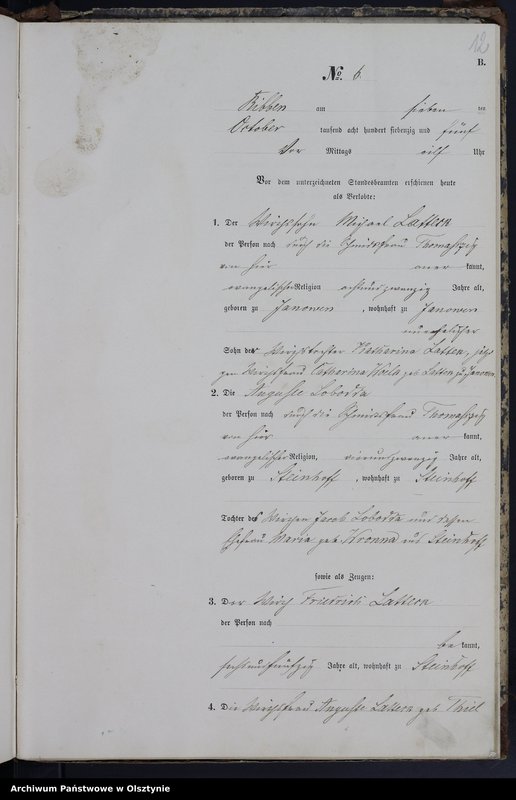 12
B.
No. 6
Ribben am sieben ten
October tausend acht hundert siebenzig und fünf
Vor Mittags eilf Uhr
Vor dem unterzeichneten Standesbeamten erschienen heute
als Verlobte:
1. Der Wirthssohn Michael Lattern
der Person nach durch die Schmiedefrau Thomaschzig
von hier aner kannt,
evangelischer Religion achtundzwanzig Jahre alt,
geboren zu Janowen, wohnhaft zu Janowen
unehelicher
Sohn der Wirthstochter Katharina Latten, jetzigen
Wirthsfrau Catharina geb. Latten zu Janowen
2. Die Auguste Lobodda
der Person nach durch die Schmiedefrau Thomaschzig
von hier aner kannt,
evangelischer Religion, vierundzwanzig Jahre alt,
geboren zu Steinhoff, wohnhaft zu Steinhoff
Tochter des Wirthen Jacob Lobodda und dessen
Ehefrau Maria geb. Kronna aus Steinhoff
sowie als Zeugen:
3. Der Wirth Friedrich Lattern
der Person nach
be kannt,
sechsundfünfzig Jahre alt, wohnhaft zu Steinhoff
4. Die Wirthsfrau Auguste Lattern geb. Thiel
Archiwum Państwowe w Olsztynie